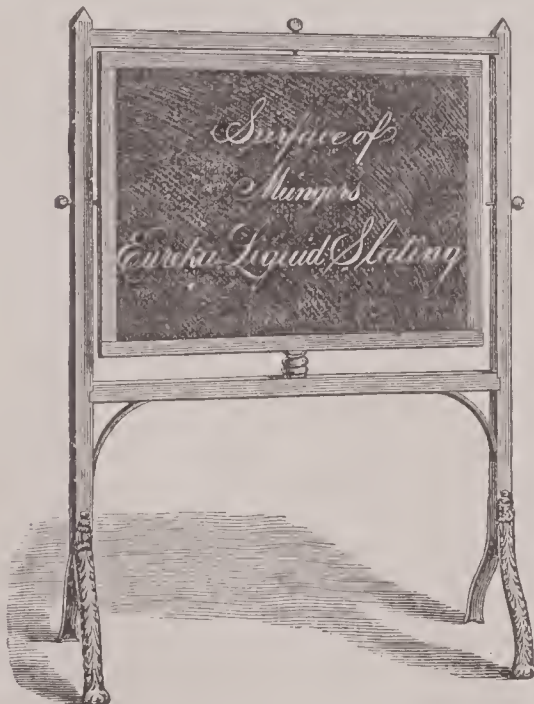 Surface of
Mungers
Eureka Liquid Slating